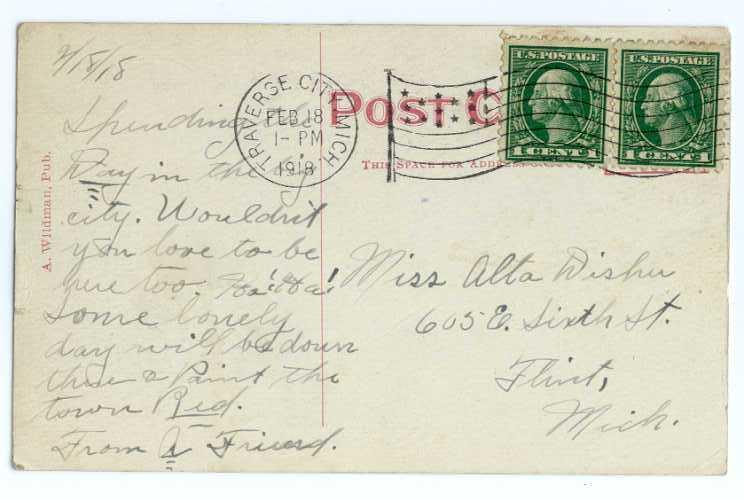 2/18/18
Spending the
Day in the big
city. Wouldn't
you love to be
here too. Ha! Ha!
Some lonely
day will be down
there & Paint the
town Red.
From A Friend.
A. Wildman, Pub.
TRAVERSE CITY, MICH.
FEB 18
1-PM
1918
POST C
THIS SPACE FOR ADDRESS
U.S. POSTAGE
1 CENT 1
U.S. POSTAGE
1 CENT 1
Miss Alta Disher
605 E. Sixth St.
Flint,
Mich.